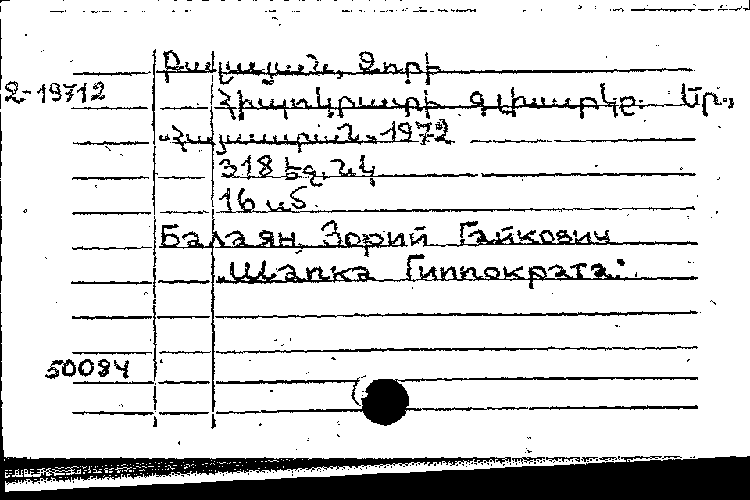 Բալայան, Զորի
Զ-19712
Հիպոկրատի գլխարկը. Եր.,
«Հայաստան» 1972
318 եզ. նկ
16 սմ.
Балаян, Зорий Гайкович
„Шапка Гиппократа:
50084